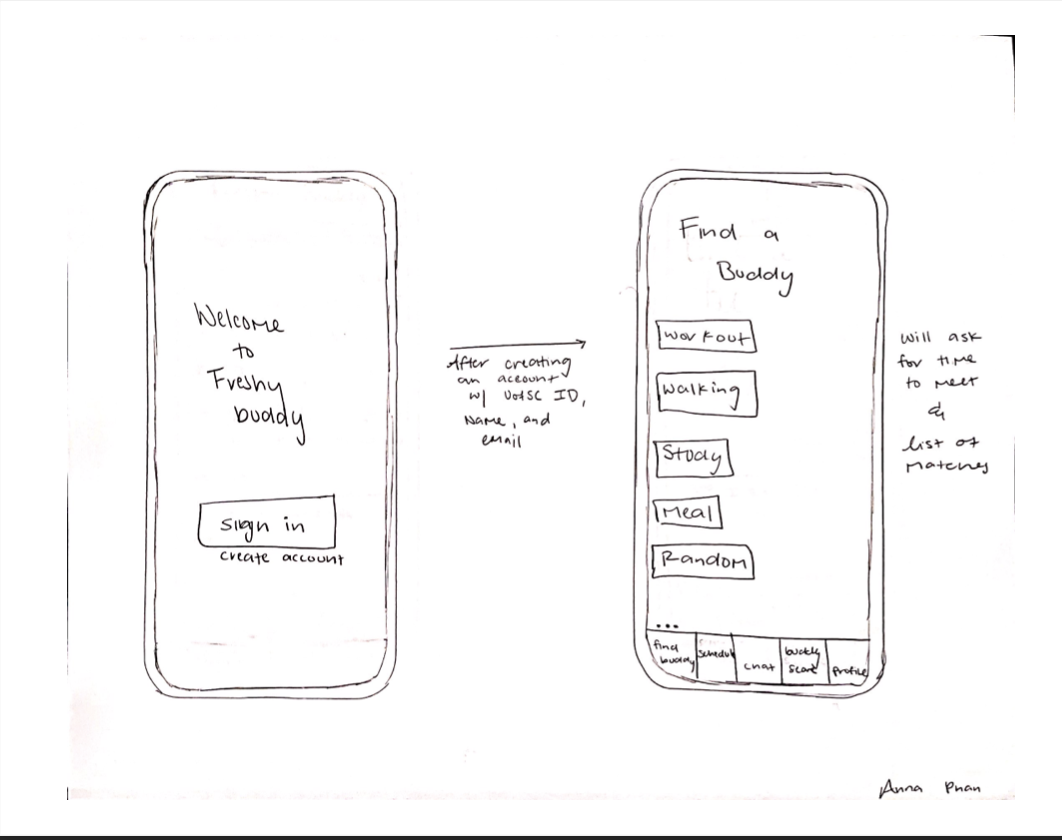 Welcome
to
Freshy
buddy
sign in
create account
After creating
an account
w/ UofSC ID,
Name, and
email
Find a
Buddy
workout
walking
Study
Meal
Random
...
find
buddy
schedule
chat
buddy
profile
will ask
for time
to meet
&
list of
matches
Anna Phan